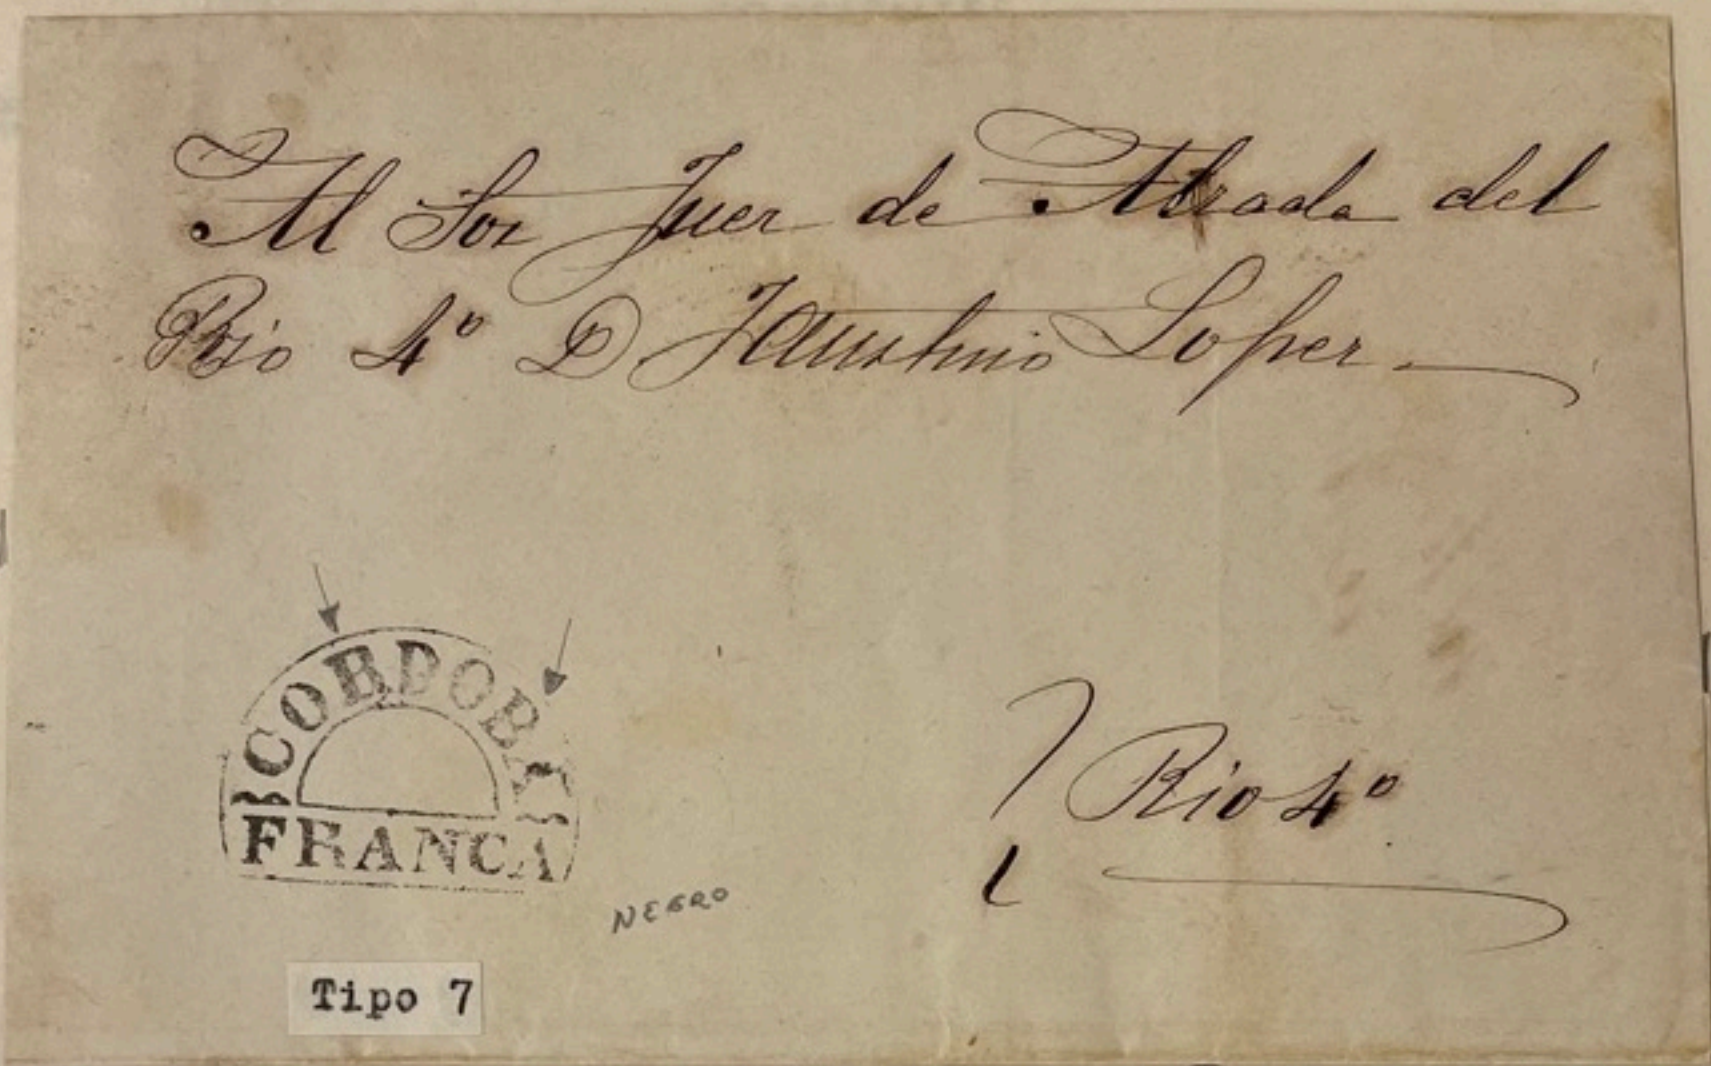 Al Sor Juez de Alzada del
Rio 4º D Faustino Lopez
CORDOBA
FRANCA
NEGRO
Rio 4º
Tipo 7